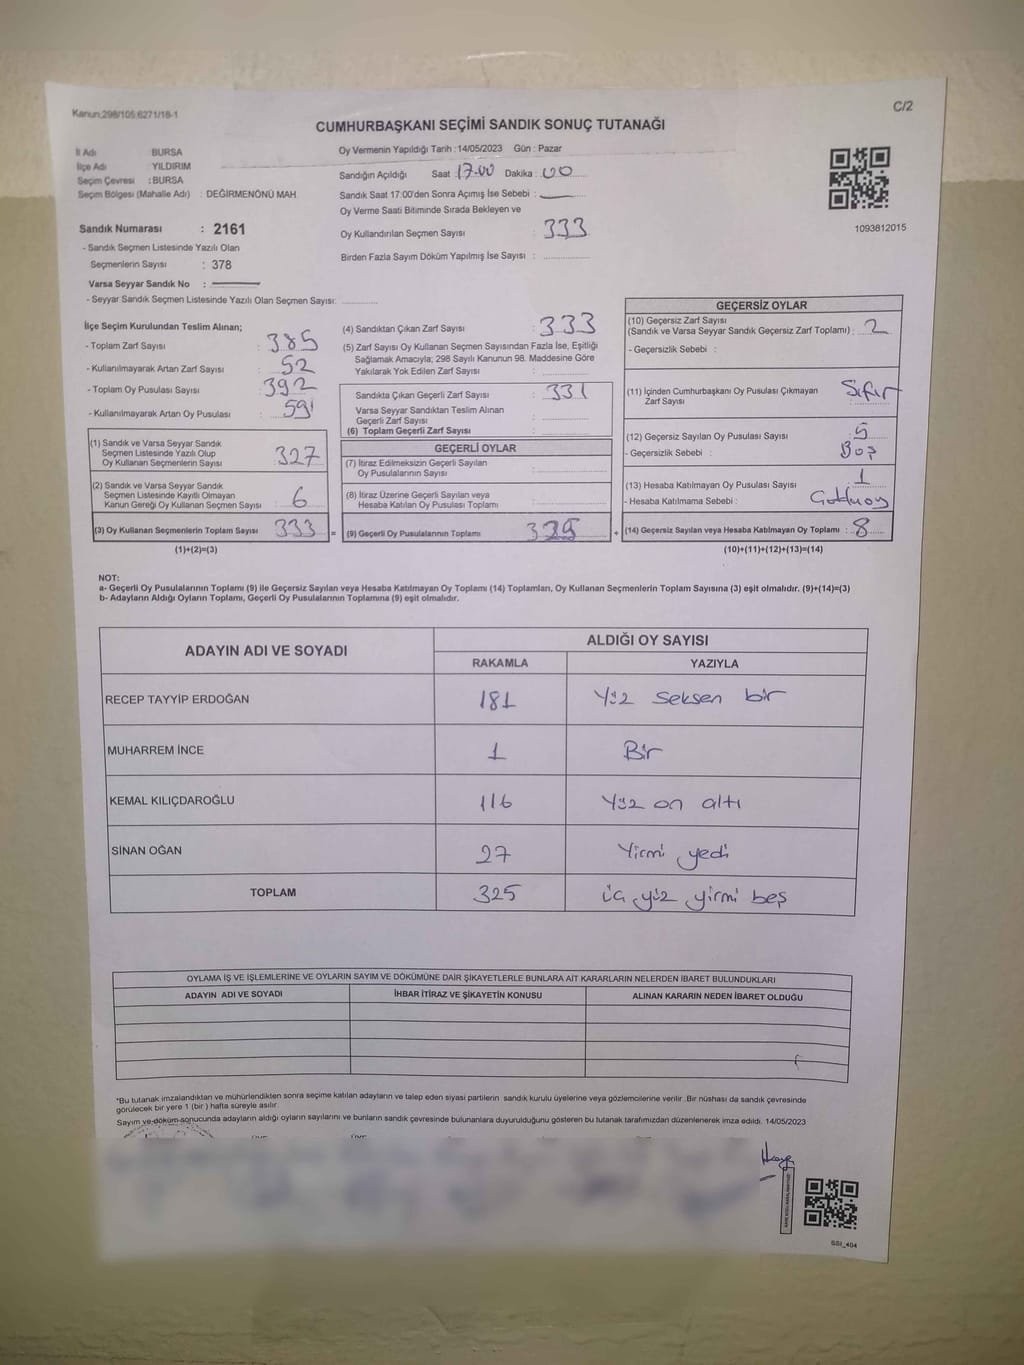 Kanun;298/105;6271/18-1
C/2
CUMHURBAŞKANI SEÇİMİ SANDIK SONUÇ TUTANAĞI
İl Adı BURSA
İlçe Adı : YILDIRIM
Seçim Çevresi : BURSA
Seçim Bölgesi (Mahalle Adı) : DEĞİRMENÖNÜ MAH.
Sandık Numarası : 2161
- Sandık Seçmen Listesinde Yazılı Olan
Seçmenlerin Sayısı : 378
Varsa Seyyar Sandık No :
- Seyyar Sandık Seçmen Listesinde Yazılı Olan Seçmen Sayısı:
Oy Vermenin Yapıldığı Tarih :14/05/2023 Gün : Pazar
Sandığın Açıldığı Saat : 17.00 Dakika : 00
Sandık Saat 17:00'den Sonra Açımış İse Sebebi :
Oy Verme Saati Bitiminde Sırada Bekleyen ve
Oy Kullandırılan Seçmen Sayısı : 333
Birden Fazla Sayım Döküm Yapılmış İse Sayısı :
1093812015
İlçe Seçim Kurulundan Teslim Alınan;
- Toplam Zarf Sayısı : 385
- Kullanılmayarak Artan Zarf Sayısı : 52
- Toplam Oy Pusulası Sayısı : 392
- Kullanılmayarak Artan Oy Pusulası : 59
(1) Sandık ve Varsa Seyyar Sandık
Seçmen Listesinde Yazılı Olup
Oy Kullanan Seçmenlerin Sayısı : 327
(2) Sandık ve Varsa Seyyar Sandık
Seçmen Listesinde Kayıtlı Olmayan
Kanun Gereği Oy Kullanan Seçmen Sayısı : 6
(3) Oy Kullanan Seçmenlerin Toplam Sayısı 333 =
(1)+(2)=(3)
(4) Sandıktan Çıkan Zarf Sayısı : 333
(5) Zarf Sayısı Oy Kullanan Seçmen Sayısından Fazla İse, Eşitliği
Sağlamak Amacıyla; 298 Sayılı Kanunun 98. Maddesine Göre
Yakılarak Yok Edilen Zarf Sayısı :
Sandıkta Çıkan Geçerli Zarf Sayısı : 331
Varsa Seyyar Sandıktan Teslim Alınan
Geçerli Zarf Sayısı :
(6) Toplam Geçerli Zarf Sayısı :
GEÇERLİ OYLAR
(7) İtiraz Edilmeksizin Geçerli Sayılan
Oy Pusulalarının Sayısı :
(8) İtiraz Üzerine Geçerli Sayılan veya
Hesaba Katılan Oy Pusulası Toplamı :
(9) Geçerli Oy Pusulalarının Toplamı : 325 +
GEÇERSİZ OYLAR
(10) Geçersiz Zarf Sayısı
(Sandık ve Varsa Seyyar Sandık Geçersiz Zarf Toplamı) : 2
- Geçersizlik Sebebi :
(11) İçinden Cumhurbaşkanı Oy Pusulası Çıkmayan
Zarf Sayısı : Sıfır
(12) Geçersiz Sayılan Oy Pusulası Sayısı : 5
- Geçersizlik Sebebi : Boş
(13) Hesaba Katılmayan Oy Pusulası Sayısı : 1
- Hesaba Katılmama Sebebi :
(14) Geçersiz Sayılan veya Hesaba Katılmayan Oy Toplamı : 8
(10)+(11)+(12)+(13)=(14)
NOT:
a- Geçerli Oy Pusulalarının Toplamı (9) ile Geçersiz Sayılan veya Hesaba Katılmayan Oy Toplamı (14) Toplamları, Oy Kullanan Seçmenlerin Toplam Sayısına (3) eşit olmalıdır. (9)+(14)=(3)
b- Adayların Aldığı Oyların Toplamı, Geçerli Oy Pusulalarının Toplamına (9) eşit olmalıdır.
ADAYIN ADI VE SOYADI ALDIĞI OY SAYISI
RAKAMLA YAZIYLA
RECEP TAYYİP ERDOĞAN 181 Yüz seksen bir
MUHARREM İNCE 1 Bir
KEMAL KILIÇDAROĞLU 116 Yüz on altı
SİNAN OĞAN 27 Yirmi yedi
TOPLAM 325 üç yüz yirmi beş
OYLAMA İŞ VE İŞLEMLERİNE VE OYLARIN SAYIM VE DÖKÜMÜNE DAİR ŞİKAYETLERLE BUNLARA AİT KARARLARIN NELERDEN İBARET BULUNDUKLARI
ADAYIN ADI VE SOYADI İHBAR İTİRAZ VE ŞİKAYETİN KONUSU ALINAN KARARIN NEDEN İBARET OLDUĞU
*Bu tutanak imzalandıktan ve mühürlendikten sonra seçime katılan adayların ve talep eden siyasi partilerin sandık kurulu üyelerine veya gözlemcilerine verilir. Bir nüshası da sandık çevresinde
görülecek bir yere 1 (bir) hafta süreyle asılır.
Sayım ve döküm sonucunda adayların aldığı oyların sayılarını ve bunların sandık çevresinde bulunanlara duyurulduğunu gösteren bu tutanak tarafımızdan düzenlenerek imza edildi. 14/05/2023
SSI_404